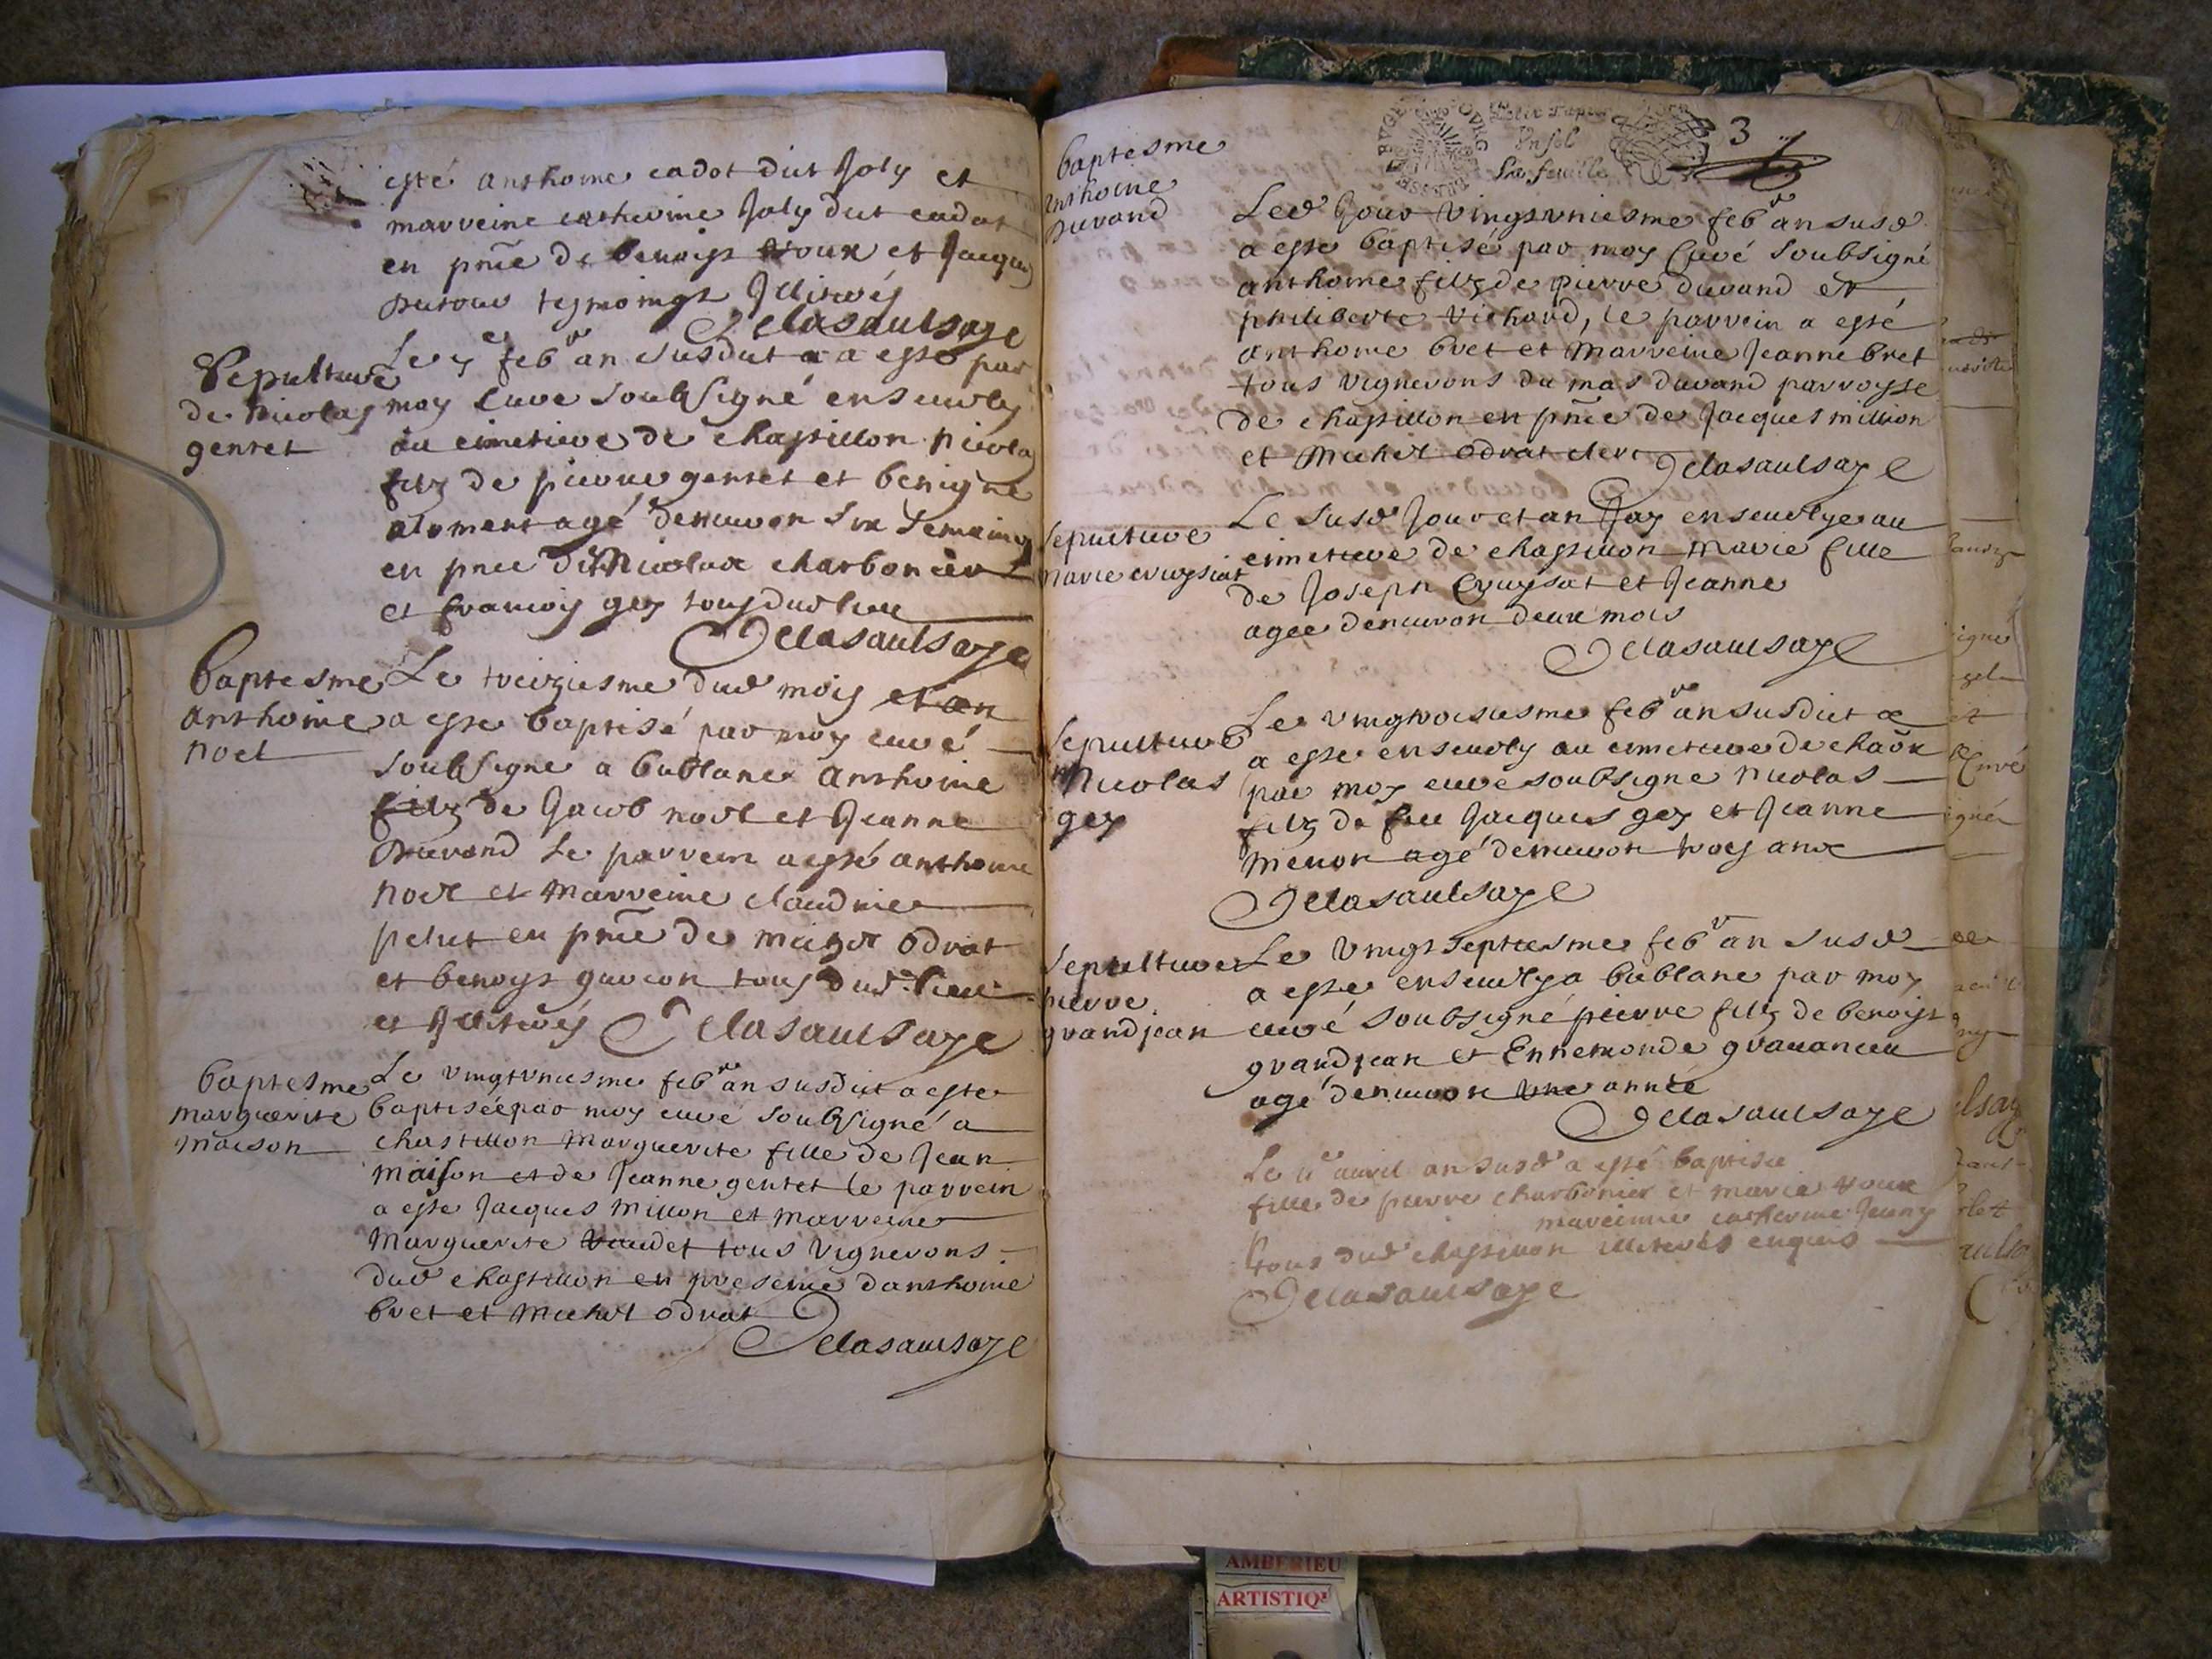 esté anthoine cadot dict Joly et
marreine catherine Joly dict cadot
en pnce de benoist roux et Jacques
Dutour tesmoingt Illiterés
Delasaulsaye
Sepulture
de Nicolas
gentet
Le 7e febr an susdict a esté par
moy Curé soubsigné ensevely
au cimetiere de chastillon Nicolas
filz de pierre gentet et benigne
aloment agé denviron six semaines
en pnce de Nicolas charbonier
et francois gey tous dud lieu
Delasaulsaye
Baptesme
anthoine
noel
Le treiziesme dud mois et an
a esté baptisé par moy curé
soubsigné a bublane anthoine
filz de Jacob noel et Jeanne
Durand le parrein a esté anthoine
noel et marreine claudine
pelut en pnce de michel odrat
et benoyst garcon tous dud lieu
et Illiterés Delasaulsaye
baptesme
marguerite
maison
Le vingtuniesme febr an susdict a esté
baptiséé par moy curé soubsigné a
chastillon marguerite fille de Jean
maison et de Jeanne gentet le parrein
a esté Jacques million et marreine
marguerite vaudet tous vignerons
dud chastillon en presence danthoine
bret et michel odrat
Delasaulsaye
3
un sol
La feuille
baptesme
anthoine
Durand
Led Jour vingtuniesme febr an susd
a esté baptisé par moy Curé soubsigné
anthoine filz de pierre durand et
philiberte Richard, le parrein a esté
anthoine bret et marreine Jeanne bret
tous vignerons du mas durand parroysse
de chastillon en pnce de Jacques million
et michel odrat clerc Delasaulsaye
Sepulture
Marie cruysiat
Le susd Jour et an Jay ensevelye au
cimetiere de chastillon marie fille
de Joseph Cruysat et Jeanne
agee denviron deux mois
Delasaulsaye
Sepulture
Nicolas
gey
Le vingtroisiesme febr an susdict
a esté ensevely au cimetiere de chaon
par moy curé soubsigné Nicolas
filz de feu Jacques gey et Jeanne
menon agé denviron troys ans
Delasaulsaye
Sepulture
pierre
grandjean
Le vingt septiesme febr an susd
a esté ensevely a bublane par moy
curé soubsigné pierre filz de benoist
grandjean et Ennemonde
agé denviron une année
Delasaulsaye
Le 11e avril an susd a esté baptisée
fille de pierre charbonier et marie roux
mareinne catherine Jeany
tous dud chastillon illiterés enquis
Delasaulsaye
AMBERIEU
ARTISTIQ